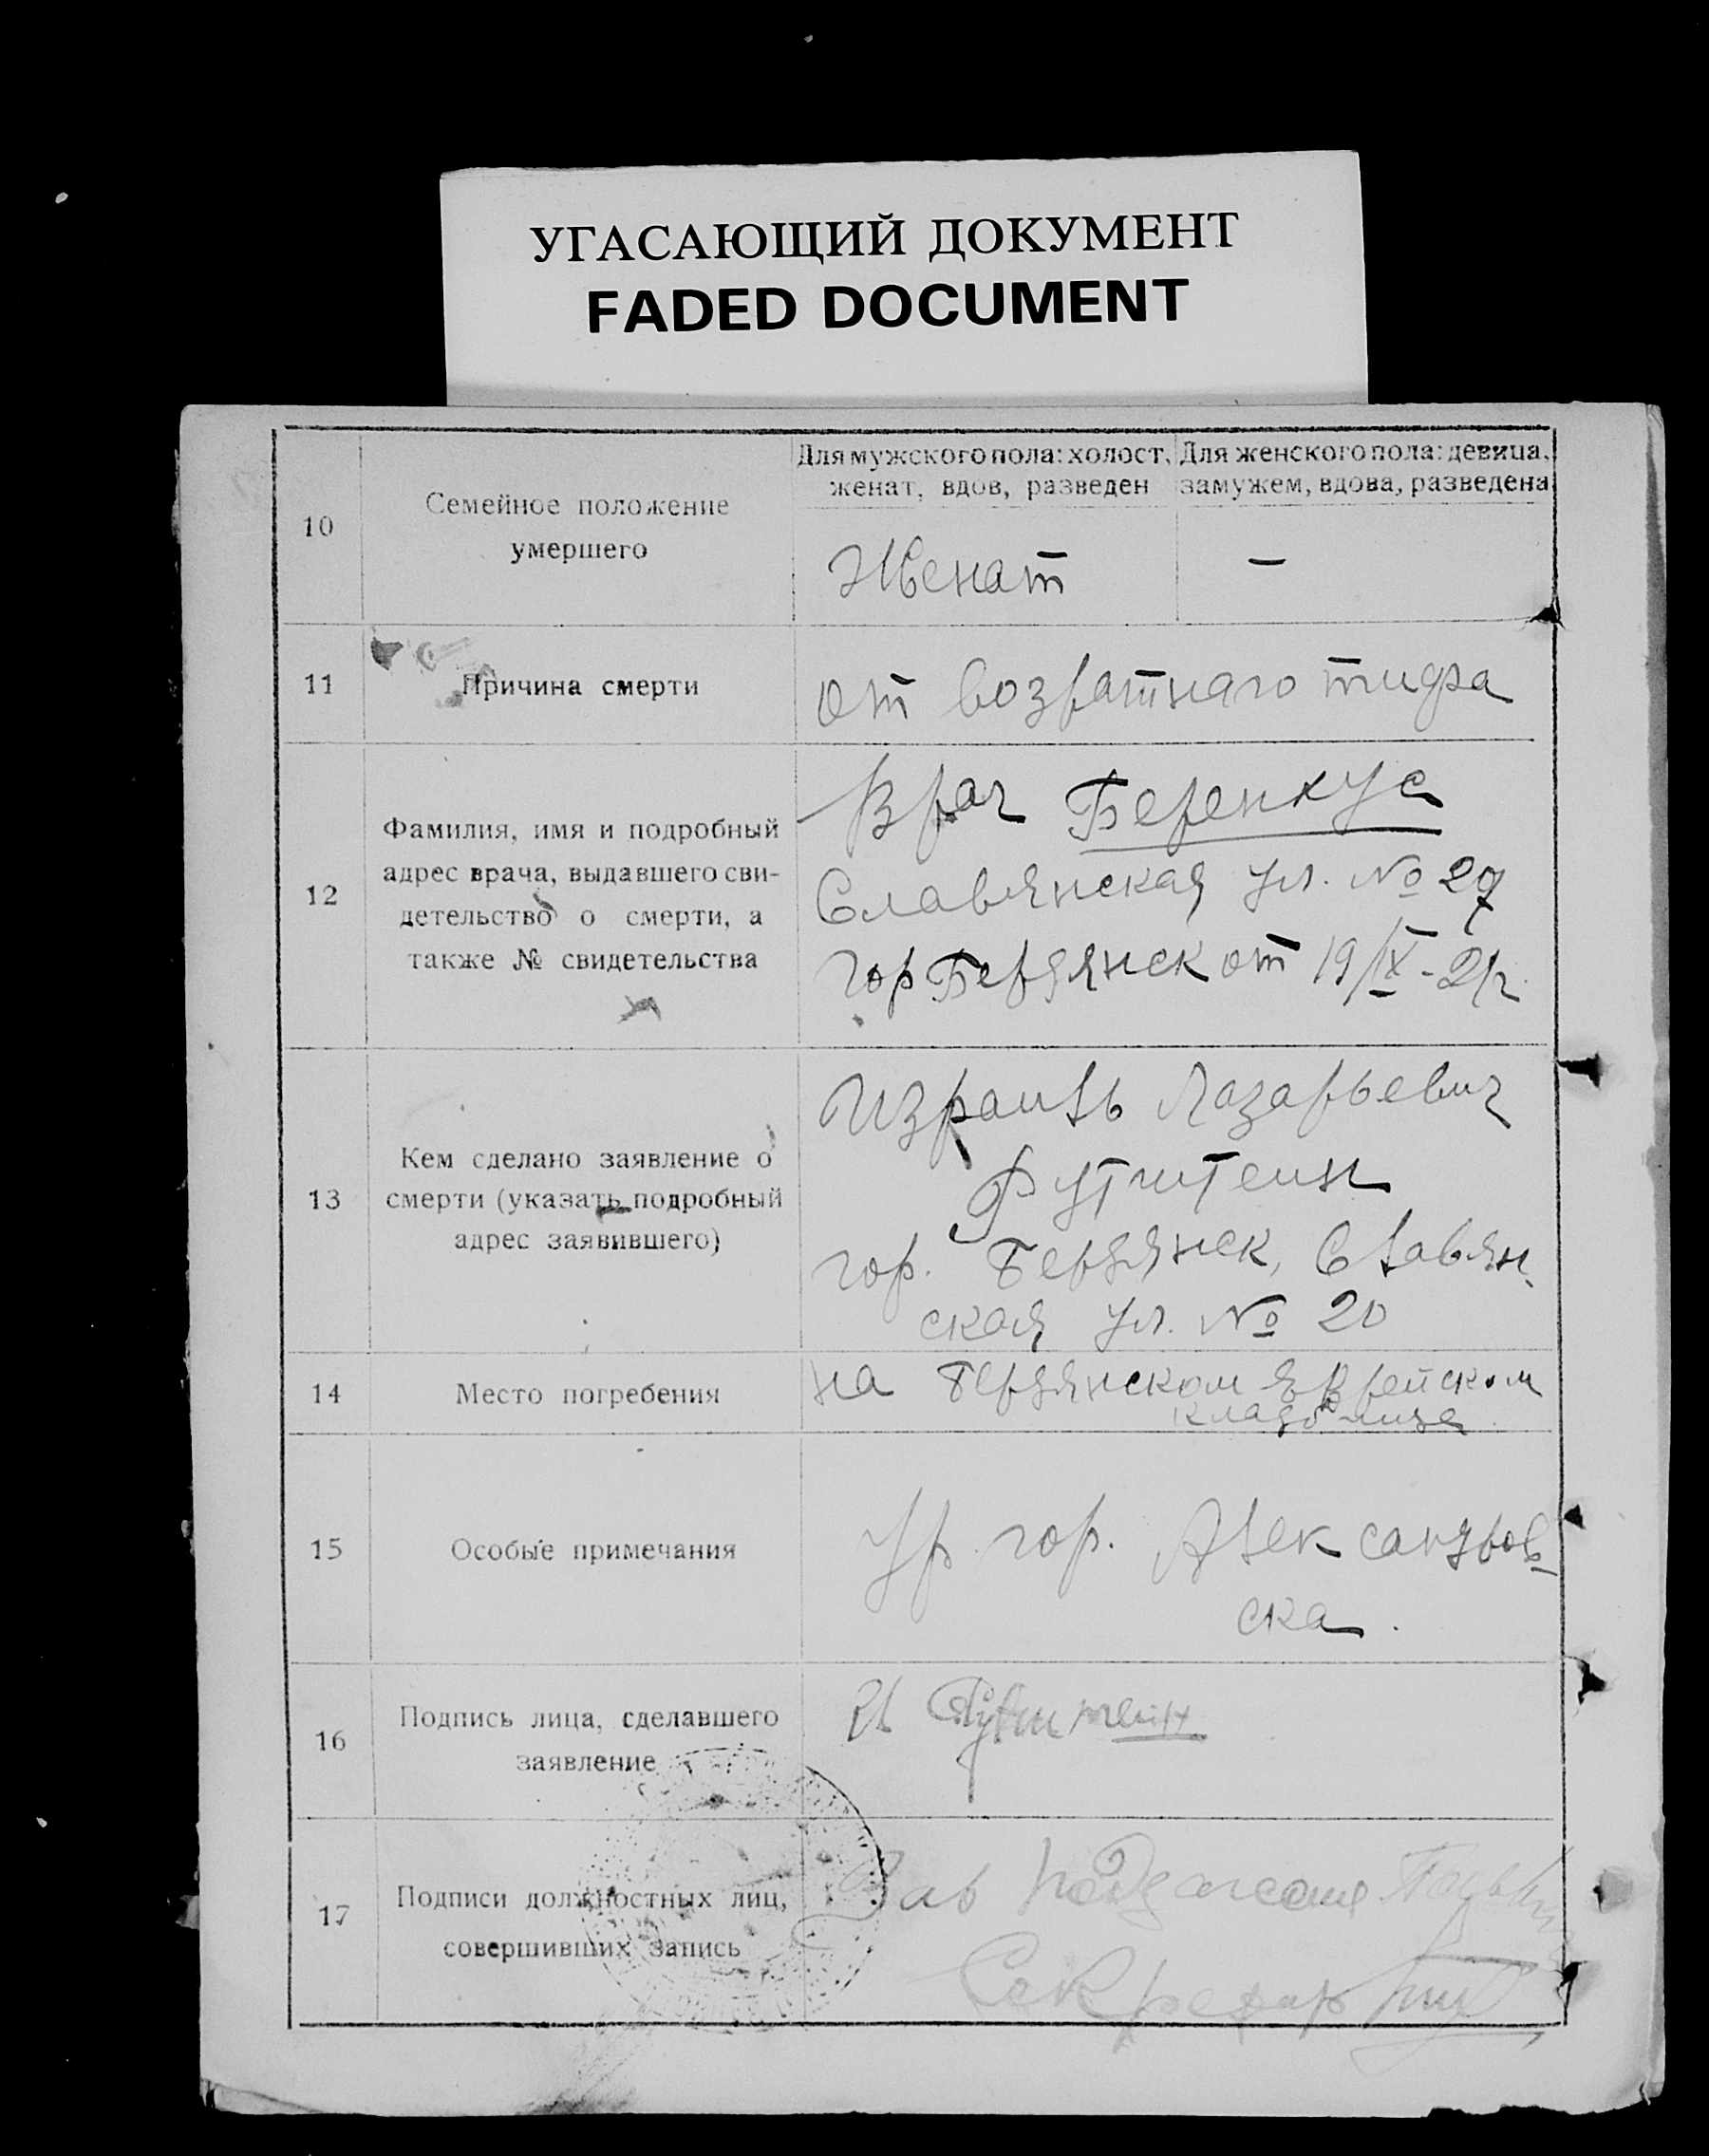 УГАСАЮЩИЙ ДОКУМЕНТ
FADED DOCUMENT
10
Семейное положение
умершего
Для мужского пола: холост,
женат, вдов, разведен
Для женского пола: девица,
замужем, вдова, разведена
Женат
—
11
Причина смерти
от возратнаго тифа
12
Фамилия, имя и подробный
адрес врача, выдавшего сви-
детельство о смерти, а
также № свидетельства
Врач Беренкус
Славянская ул. №
гор Бердянск от 19/IX - 21г.
13
Кем сделано заявление о
смерти (указать подробный
адрес заявившего)
Израиль Лазарьевич
гор. Бердянск, Славян
ская ул. № 20
14
Место погребения
на Бердянском Еврейском
15
Особые примечания
Ур. гор. Александров-
ска.
16
Подпись лица, сделавшего
заявление
И
17
Подписи должностных лиц,
совершивших запись
Зав
Секретарь